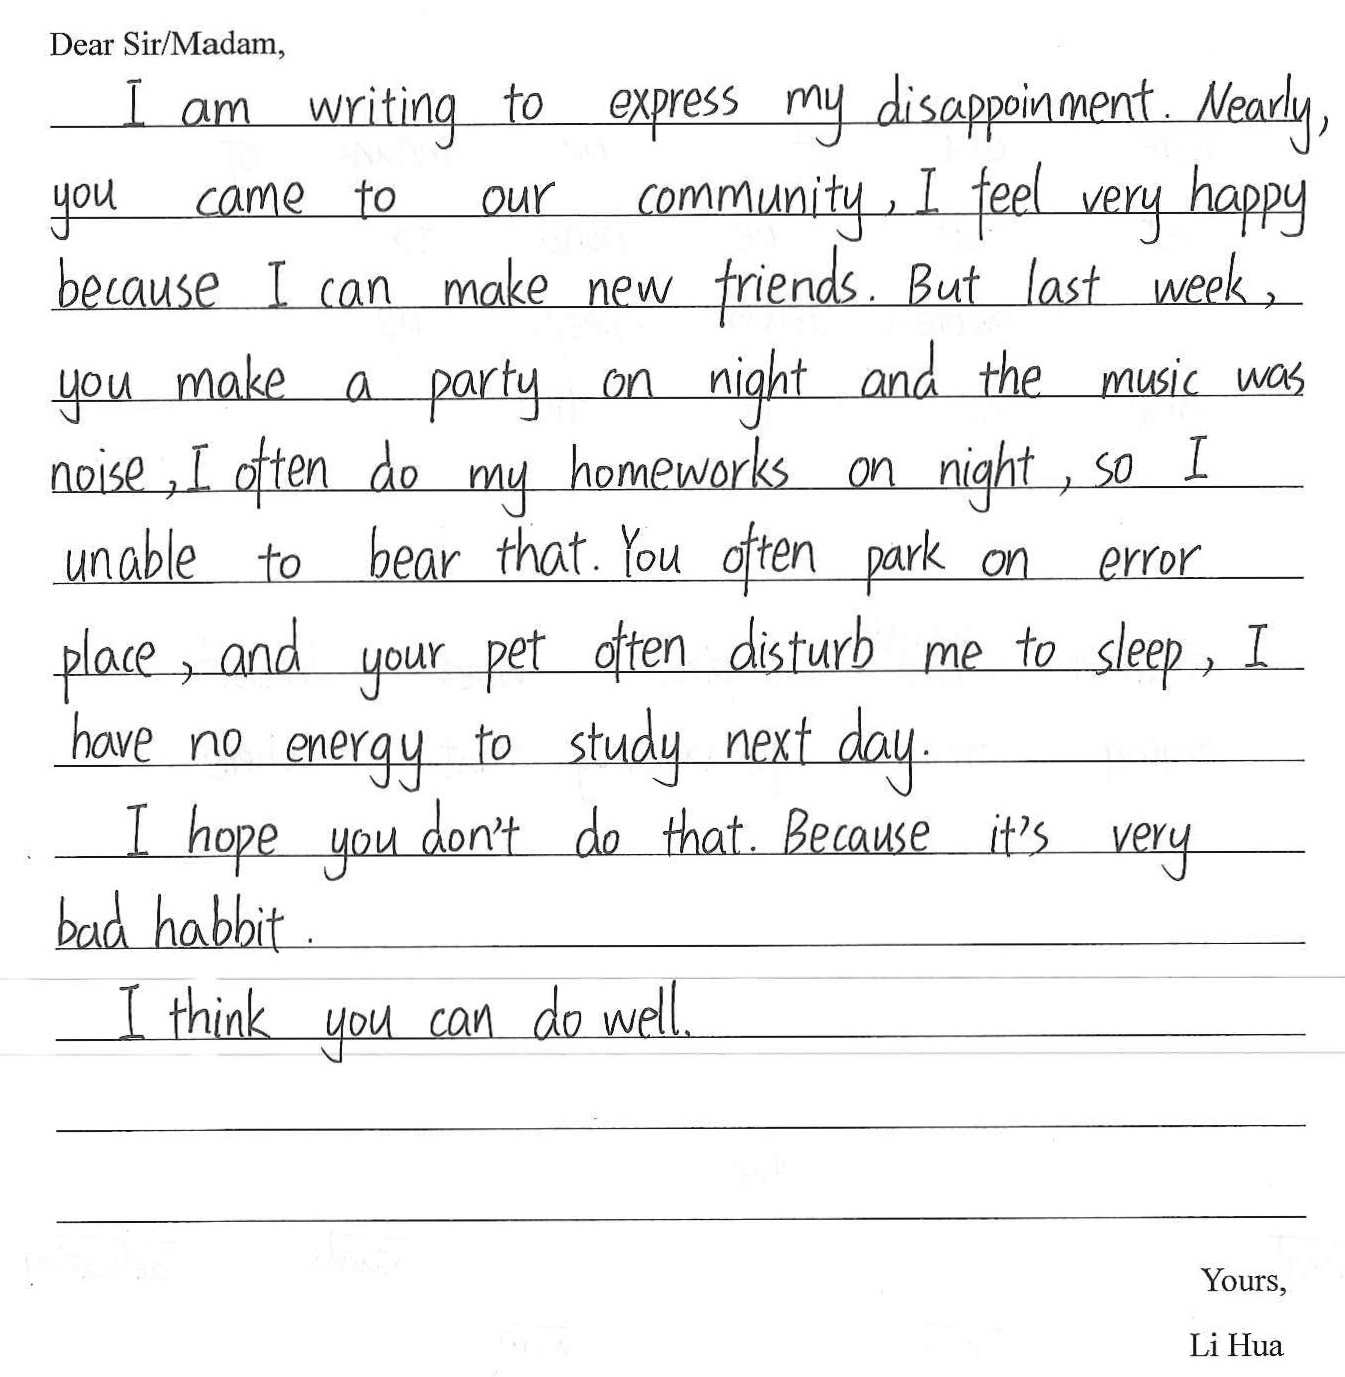 Dear Sir/Madam,
I am writing to express my disappoinment. Nearly,
you came to our community, I feel very happy
because I can make new friends. But last week,
you make a party on night and the music was
noise, I often do my homeworks on night, so I
unable to bear that. You often park on error
place, and your pet often disturb me to sleep, I
have no energy to study next day.
I hope you don't do that. Because it's very
bad habbit.
I think you can do well.
Yours,
Li Hua